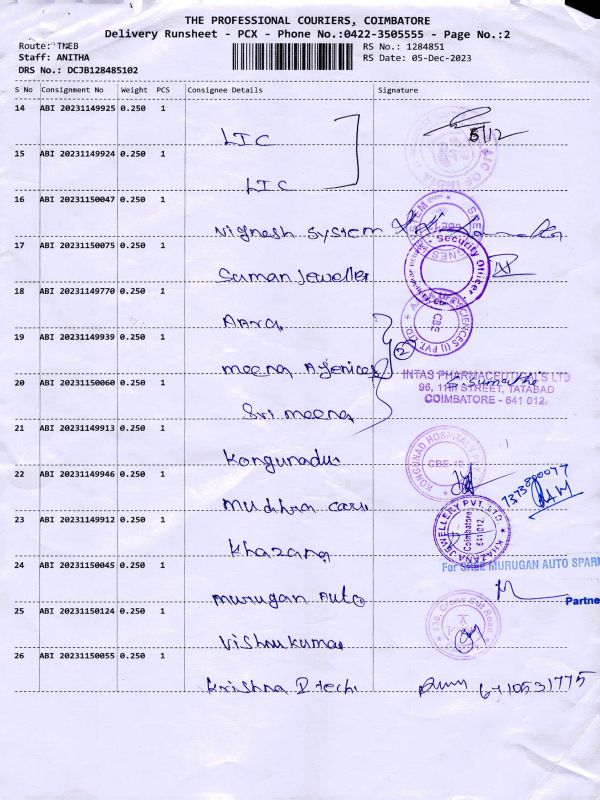 THE PROFESSIONAL COURIERS, COIMBATORE
Delivery Runsheet - PCX - Phone No.:0422-3505555 - Page No.:2
Route: TNEB
RS No.: 1284851
Staff: ANITHA
RS Date: 05-Dec-2023
DRS No.: DCJB128485102
S No Consignment No Weight PCS Consignee Details Signature
14 ABI 20231149925 0.250 1
LIC
5/12
15 ABI 20231149924 0.250 1
LIC
16 ABI 20231150047 0.250 1
Vignesh System
17 ABI 20231150075 0.250 1
Security Officer
Suman Jeweller
18 ABI 20231149770 0.250 1
CBE
19 ABI 20231149939 0.250 1
2
Meena Agencies
INTAS PHARMACEUTICALS LTD
20 ABI 20231150060 0.250 1
96, 11th STREET, TATABAD
COIMBATORE - 641 012.
Sri meena
21 ABI 20231149913 0.250 1
KONGUNAD HOSPITALS PVT.
CBE-12
Kongunadu
22 ABI 20231149946 0.250 1
Mudhra care
23 ABI 20231149912 0.250 1
KHAZANA JEWELLERY PVT. LTD.
Coimbatore
641 012.
Khazana
24 ABI 20231150045 0.250 1
For SREE MURUGAN AUTO SPARE
Murugan Auto
Partner
25 ABI 20231150124 0.250 1
Vishnukumar
26 ABI 20231150055 0.250 1
Krishna I tech